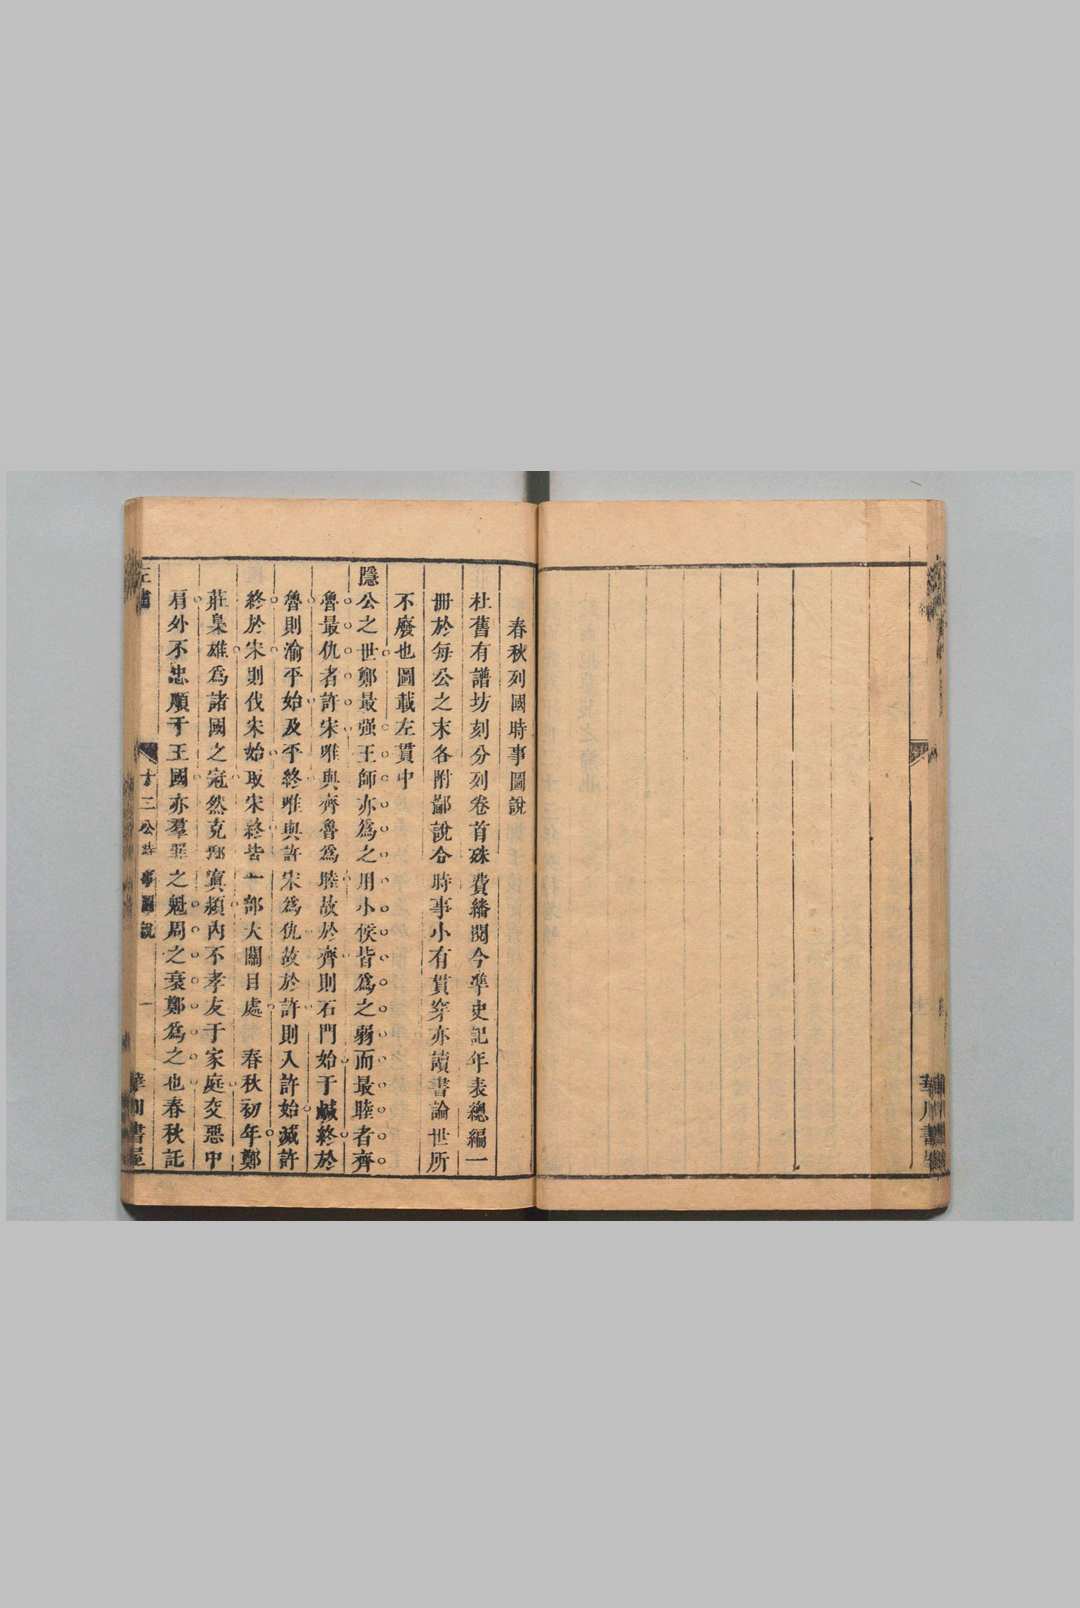 華川書屋
春秋列國時事圖說
杜舊有譜坊刻分列卷首殊費繙閱今準史記年表總編一
冊於每公之末各附鄙說合時事小有貫穿亦讀書論世所
不廢也圖載左貫中
隱公之世鄭最强王師亦為之用小侯皆為之弱而最睦者齊
魯最仇者許宋唯與齊魯為睦故於齊則石門始于鹹終於
魯則渝平始及平終唯與許宋為仇故於許則入許始滅許
終於宋則伐宋始取宋終皆一部大關目處　春秋初年鄭
莊梟雄為諸國之冠然克鄢寘潁內不孝友于家庭交惡中
肩外不忠順于王國亦羣罪之魁周之衰鄭為之也春秋託
左繡
十二公時事圖說
一
華川書屋